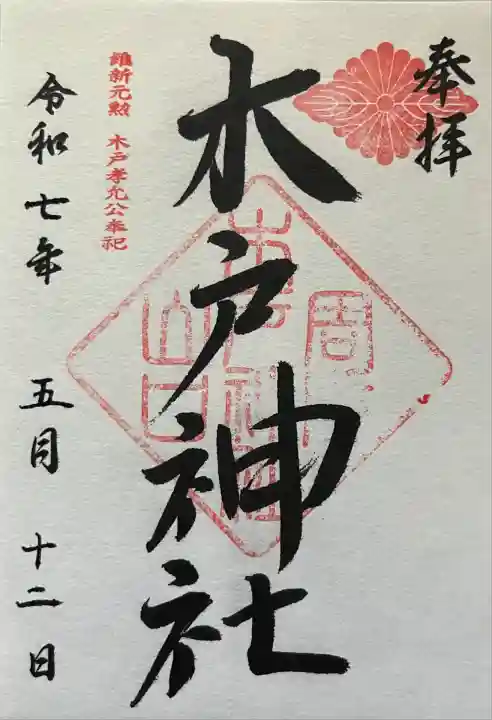 奉拝
木戸神社
周
山口
木戸神社
維新元勲 木戸孝允公奉祀
令和七年 五月 十二日